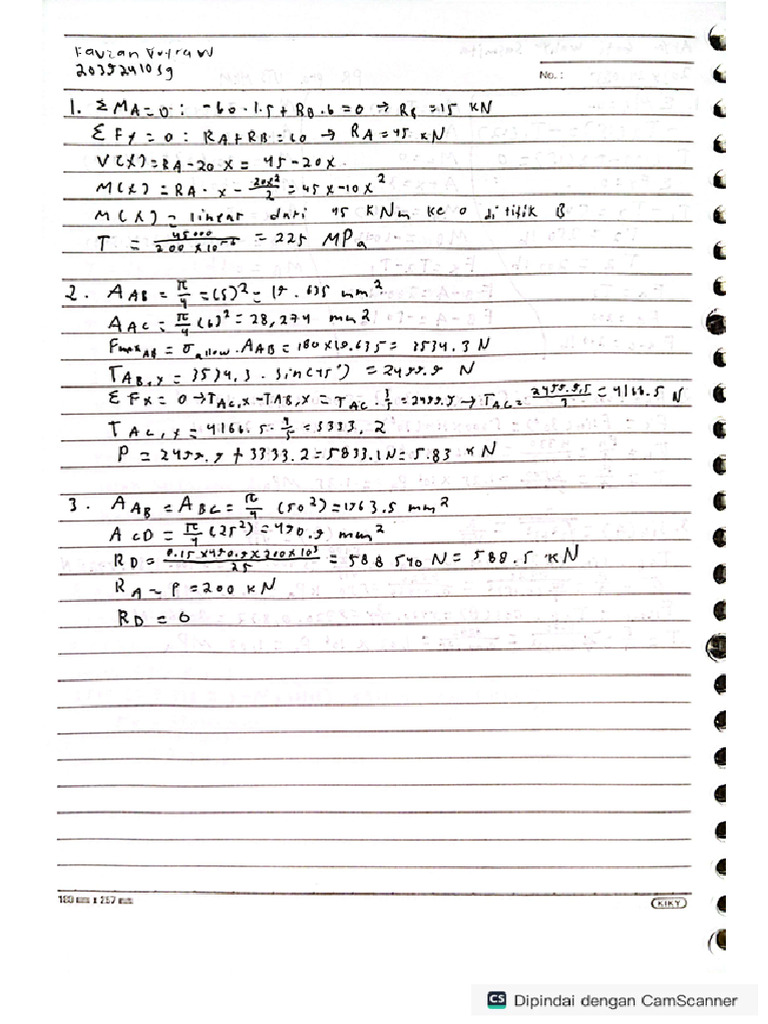 Fauzan Putra W
2035241039
No. :
1. ΣMA=0 : -60·1.5+RB·6=0 → RB=15 kN
ΣFy=0 : RA+RB=60 → RA=45 kN
V(x)=RA-20x= 45-20x.
M(x)=RA·x-20x²/2=45x-10x²
M(x) → linear dari 45 kNm ke 0 di titik B
T = 45000/200×10⁻⁶ = 225 MPa
2. AAB = π/4 =(5)²=19.635 mm²
AAC = π/4(6)²=28,274 mm²
FmaxAB=σallow·AAB=180×19.635= 3534.3 N
TAB,x=3534,3·sin(45°)=2499.9 N
ΣFx=0→TAC,x-TAB,x=TAC·3/5=2499.9→TAC=2499.9,5/3=4166.5 N
TAC,x=4166.5·4/5=3333,2
P=2499.9+3333.2=5833.1N=5.83 kN
3. AAB=ABC=π/4(50²)=1963.5 mm²
ACD=π/4(25²)=490.9 mm²
RD=0.15×490.9×200×10³/25=588 540 N=588.5 kN
RA~P=200 kN
RD=0
183 mm x 257 mm
KIKY
CS Dipindai dengan CamScanner